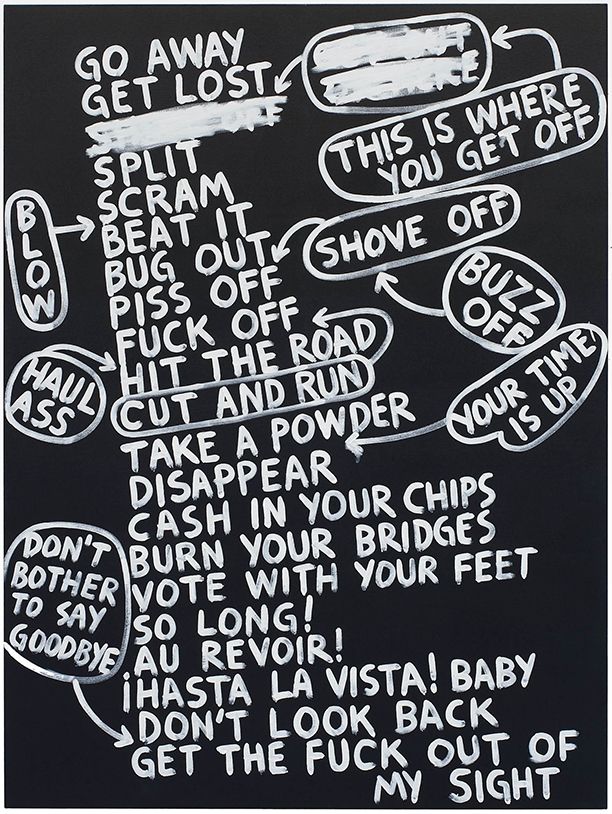 GO AWAY
GET LOST
THIS IS WHERE
YOU GET OFF
SPLIT
SCRAM
BEAT IT
BLOW
BUG OUT
SHOVE OFF
PISS OFF
BUZZ
OFF
FUCK OFF
HIT THE ROAD
HAUL
ASS
CUT AND RUN
YOUR TIME
IS UP
TAKE A POWDER
DISAPPEAR
CASH IN YOUR CHIPS
BURN YOUR BRIDGES
VOTE WITH YOUR FEET
DON'T
BOTHER
TO SAY
GOODBYE
SO LONG!
AU REVOIR!
¡HASTA LA VISTA! BABY
DON'T LOOK BACK
GET THE FUCK OUT OF
MY SIGHT